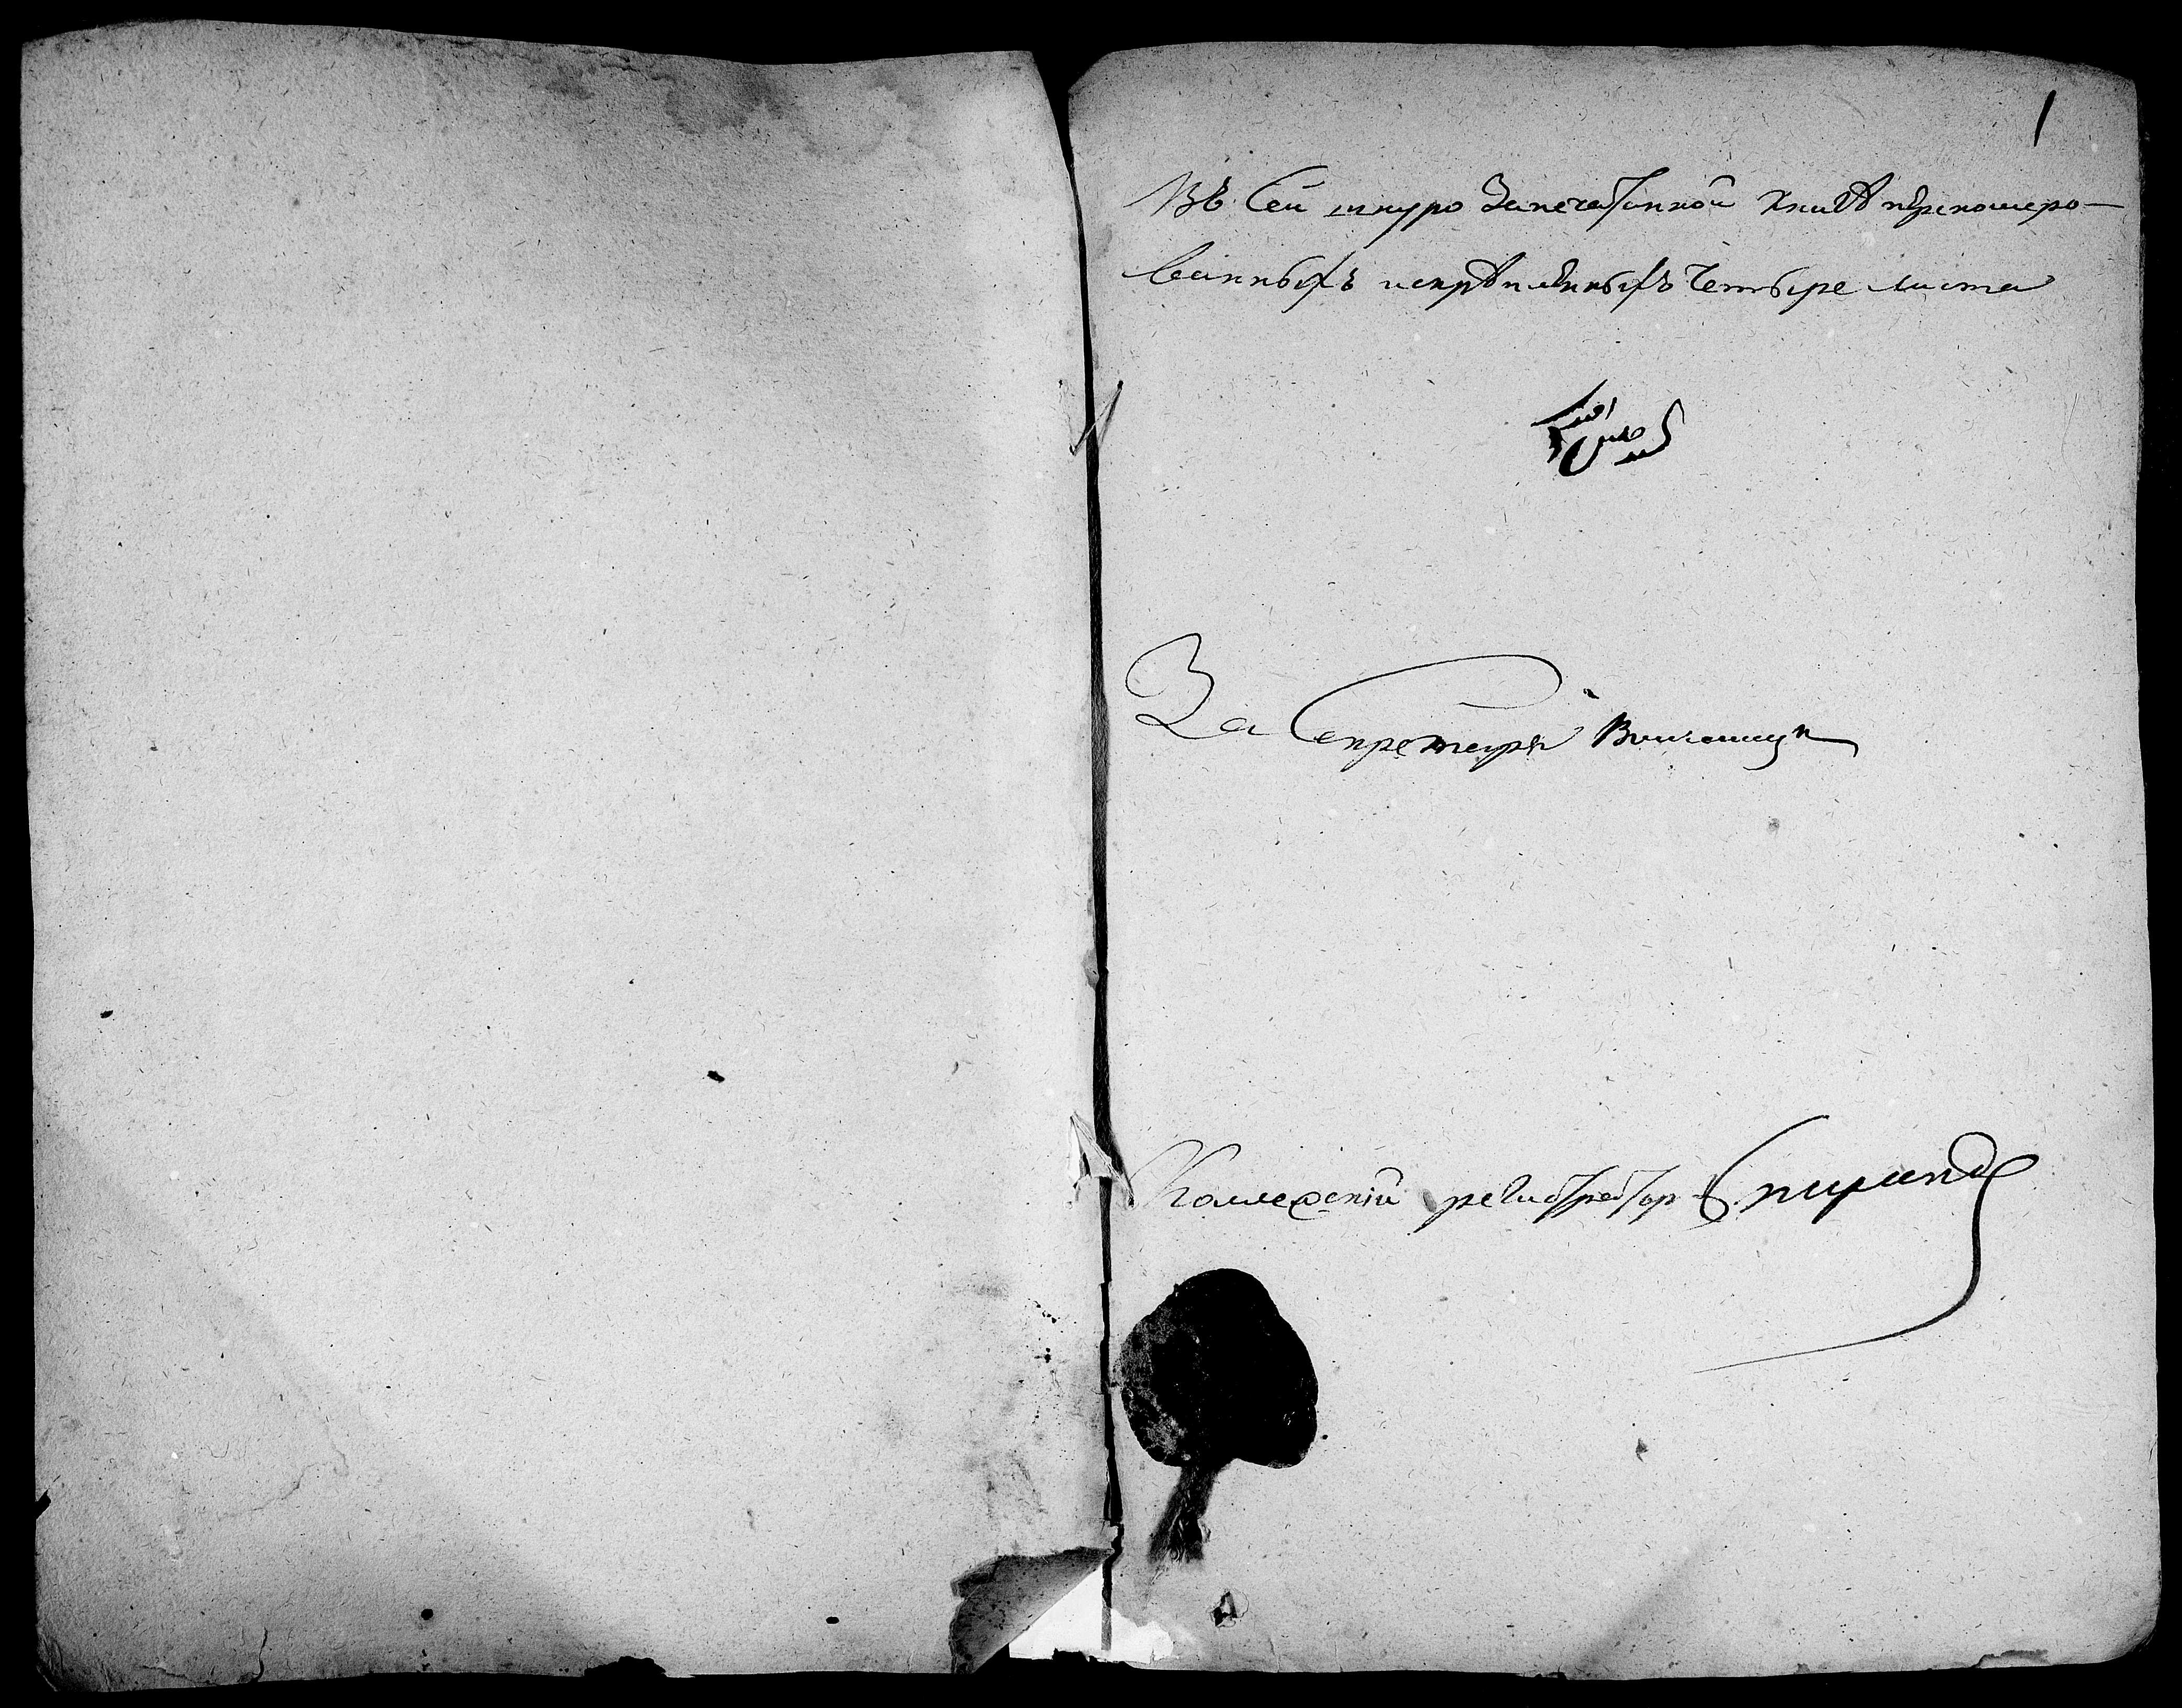 1
Въ сей шнуро запечатанной книгѣ переномеро-
ванныхъ искрѣпленныхъ четыре листа
За Секретаря
Колежскій регистраторъ